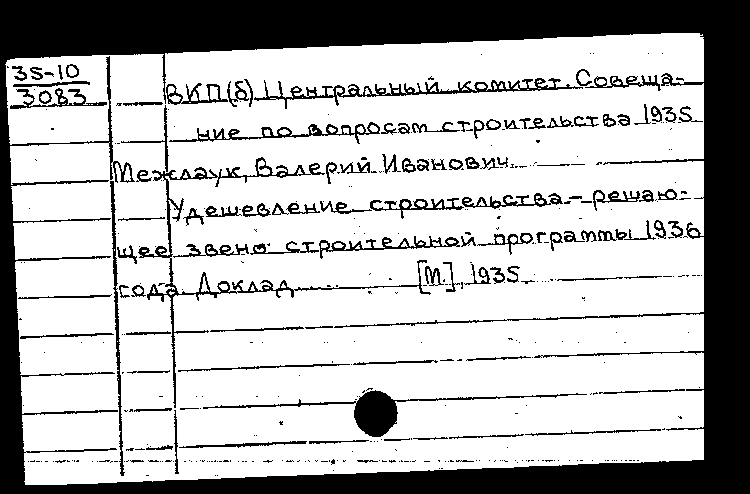 35-10
3083
ВКП(б) Центральный комитет. Совеща-
ние по вопросам строительства 1935
Межлаук, Валерий Иванович.
Удешевление строительства - решаю-
щее звено строительной программы 1936
года. Доклад...... [М.], 1935.